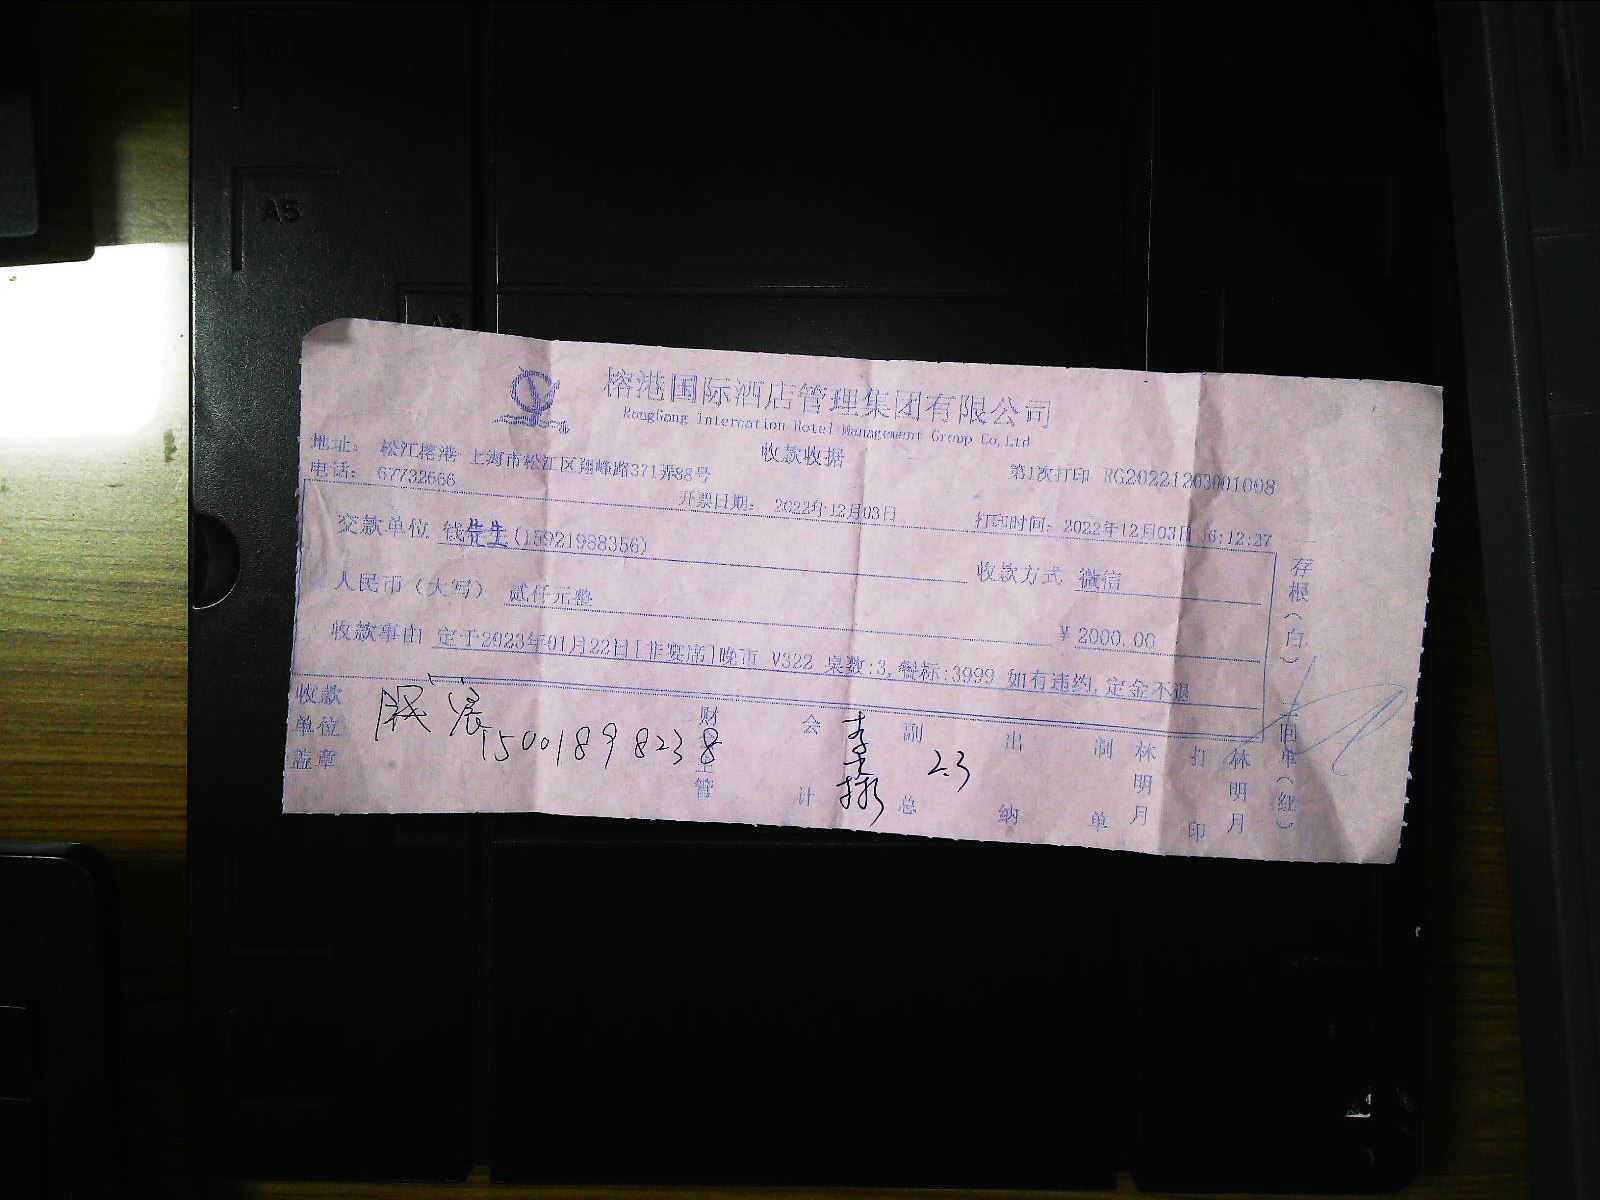 A5
A6
榕港国际酒店管理集团有限公司
RongGang Internation Hotel Management Group Co,Ltd
收款收据
地址： 松江榕港 上海市松江区翔峰路371弄88号
第1次打印 RG20221203001008
电话： 67732666
开票日期： 2022年12月03日
打印时间：2022年12月03日 16:12:27
交款单位 钱先生(15921988356)
收款方式 微信
人民币（大写） 贰仟元整
￥ 2000.00
收款事由 定于2023年01月22日[非宴席]晚市 V322 桌数:3,餐标:3999 如有违约,定金不退
存根(白)
单(红)
收款单位盖章
15001898238
财 管
会计
李
副总
2.3
出纳
制单
林明月
打印
林明月